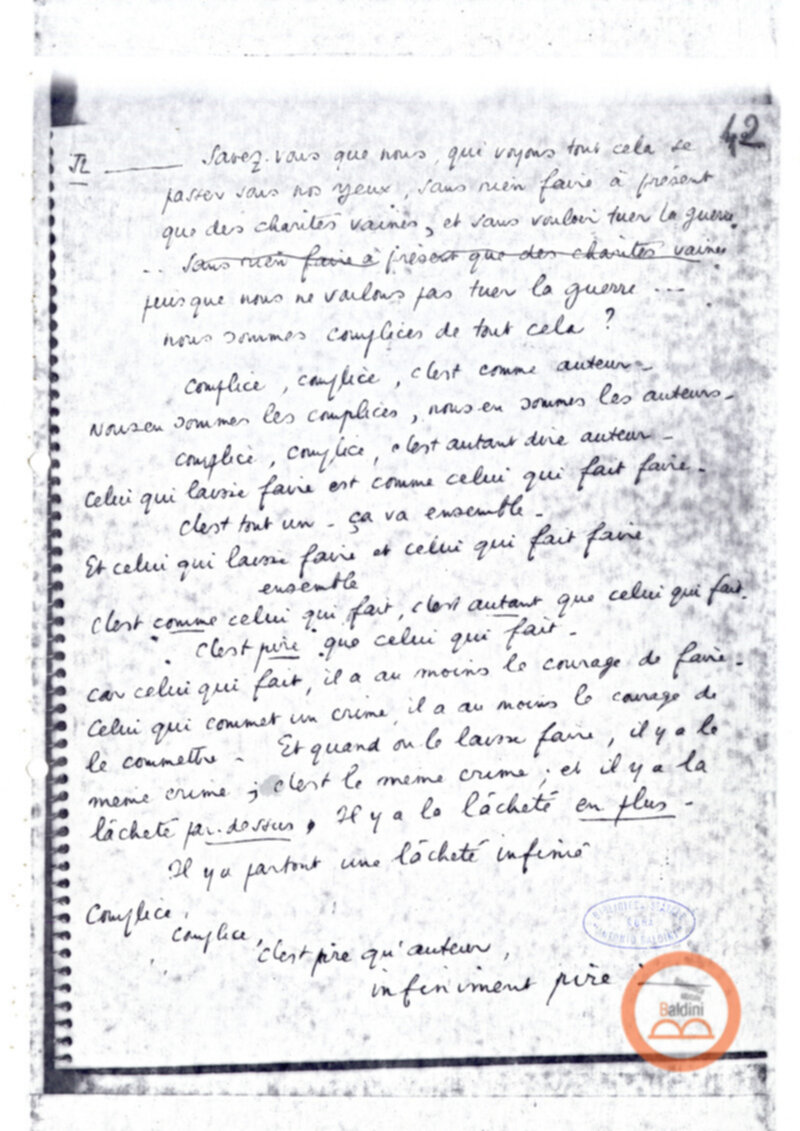 42
II ——— Savez-vous que nous, qui voyons tout cela se
passer sous nos yeux, sans rien faire à présent
que des charités vaines, et sans vouloir tuer la guerre
... sans rien faire à présent que des charités vaines
puisque nous ne voulons pas tuer la guerre ...
nous sommes complices de tout cela ?
Complice, complice, c'est comme auteur -
Nous en sommes les complices, nous en sommes les auteurs -
Complice, complice, c'est autant dire auteur -
Celui qui laisse faire est comme celui qui fait faire -
c'est tout un - ça va ensemble -
Et celui qui laisse faire et celui qui fait faire
ensemble
c'est comme celui qui fait, c'est autant que celui qui fait.
c'est pire que celui qui fait -
car celui qui fait, il a au moins le courage de faire -
Celui qui commet un crime, il a au moins le courage de
le commettre - Et quand on le laisse faire, il y a le
même crime ; c'est le même crime ; et il y a la
lâcheté par-dessus, Il y a la lâcheté en plus -
Il y a partout une lâcheté infinie
Complice,
complice, c'est pire qu'auteur,
infiniment pire
Baldini